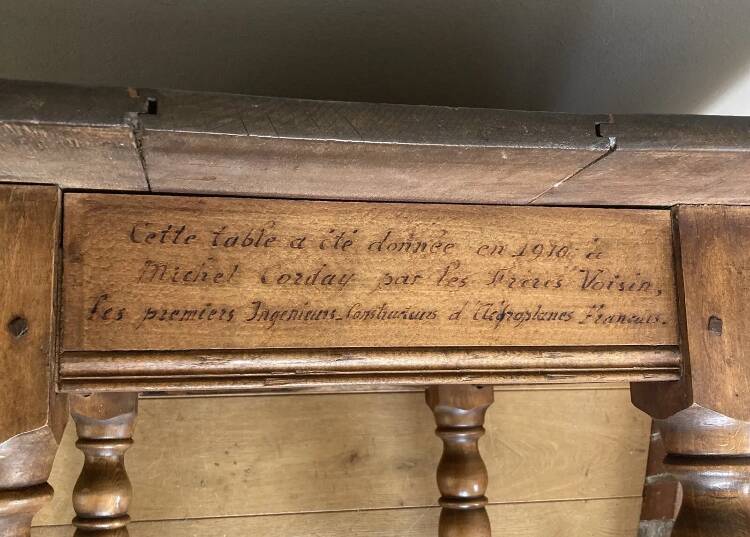 Cette table a été donnée en 1910 à
Michel Corday par les Frères Voisin,
les premiers Ingenieurs-Constructeurs d'Aéroplanes Français.